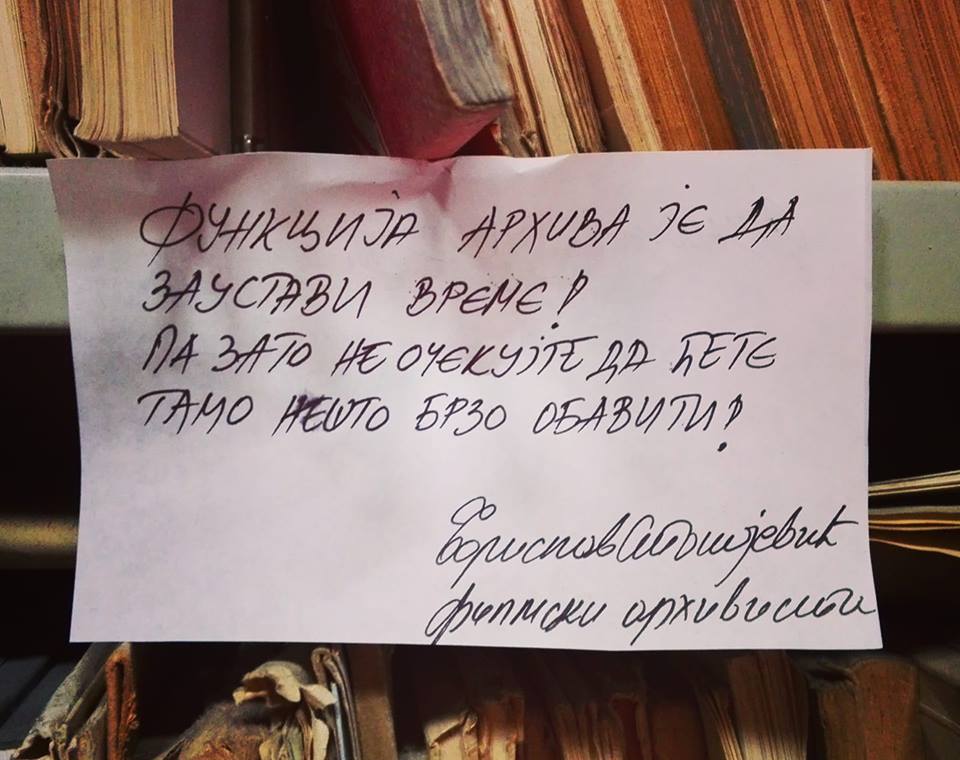 ФУНКЦИЈА АРХИВА ЈЕ ДА
ЗАУСТАВИ ВРЕМЕ!
ПА ЗАТО НЕ ОЧЕКУЈТЕ ДА ЋЕТЕ
ТАМО НЕШТО БРЗО ОБАВИТИ!
филмски архивиста